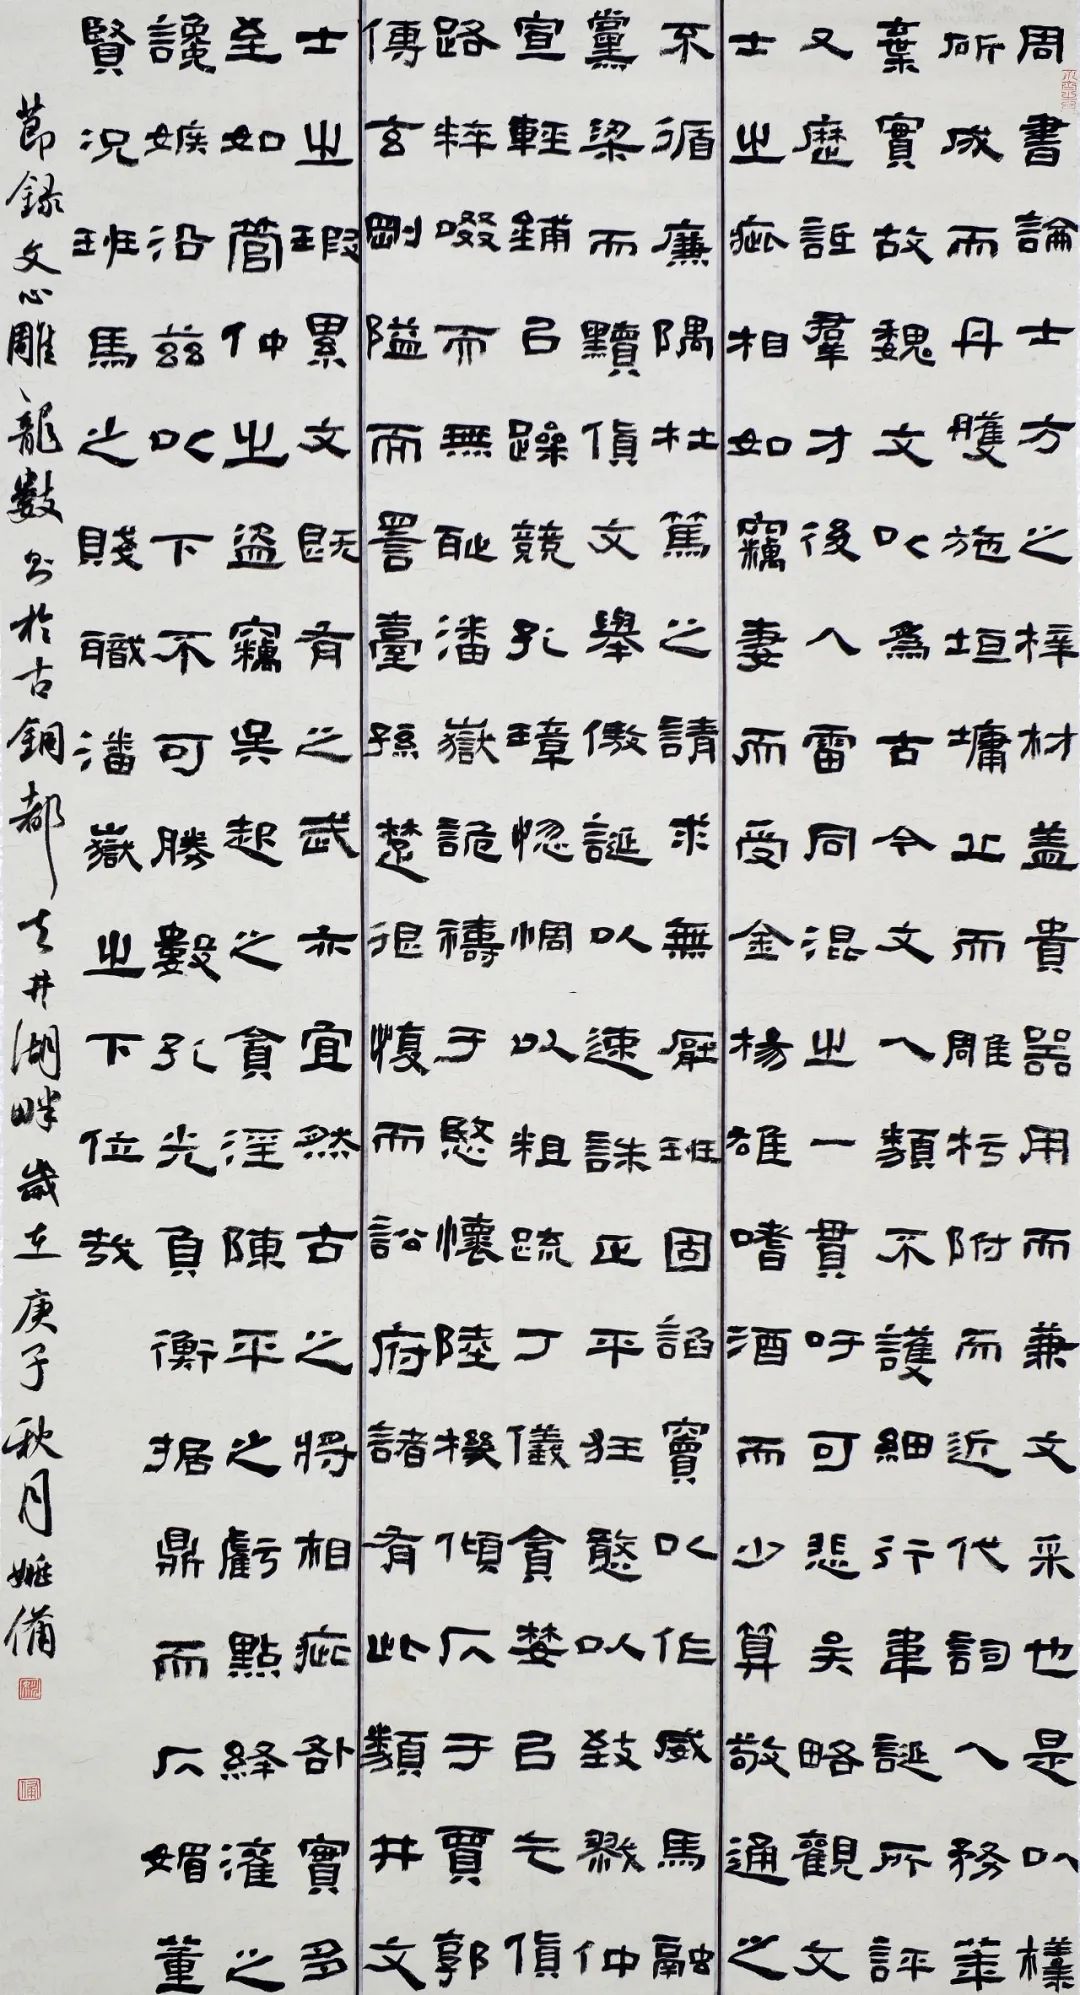 周書論士方之梓材蓋貴器用而兼文采也是以樸
斫成而丹雘施垣墉立而雕杇附而近代詞人務華
棄實故魏文以為古今文人類不護細行韋誕所評
又歷詆羣才後人雷同混之一貫吁可悲矣略觀文
士之疵相如竊妻而受金楊雄嗜酒而少算敬通之
不循廉隅杜篤之請求無厭班固諂竇以作威馬融
黨梁而黷貨文舉傲誕以速誅正平狂憨以致戮仲
宣輕鋪以躁競孔璋惚惆以粗疏丁儀貪婪以乞貨
路粹啜而無恥潘嶽詭禱于愍懷陸機傾仄于賈郭
傅玄剛隘而詈臺孫楚狠愎而訟府諸有此類並文
士之瑕累文既有之武亦宜然古之將相疵咎實多
至如管仲之盜竊吳起之貪淫陳平之虧點絳灌之
讒嫉沿茲以下不可勝數孔光負衡据鼎而仄媚董
賢況班馬之賤職潘嶽之下位哉
節錄文心雕龍數則於古銅都天井湖畔歲在庚子秋月姚備